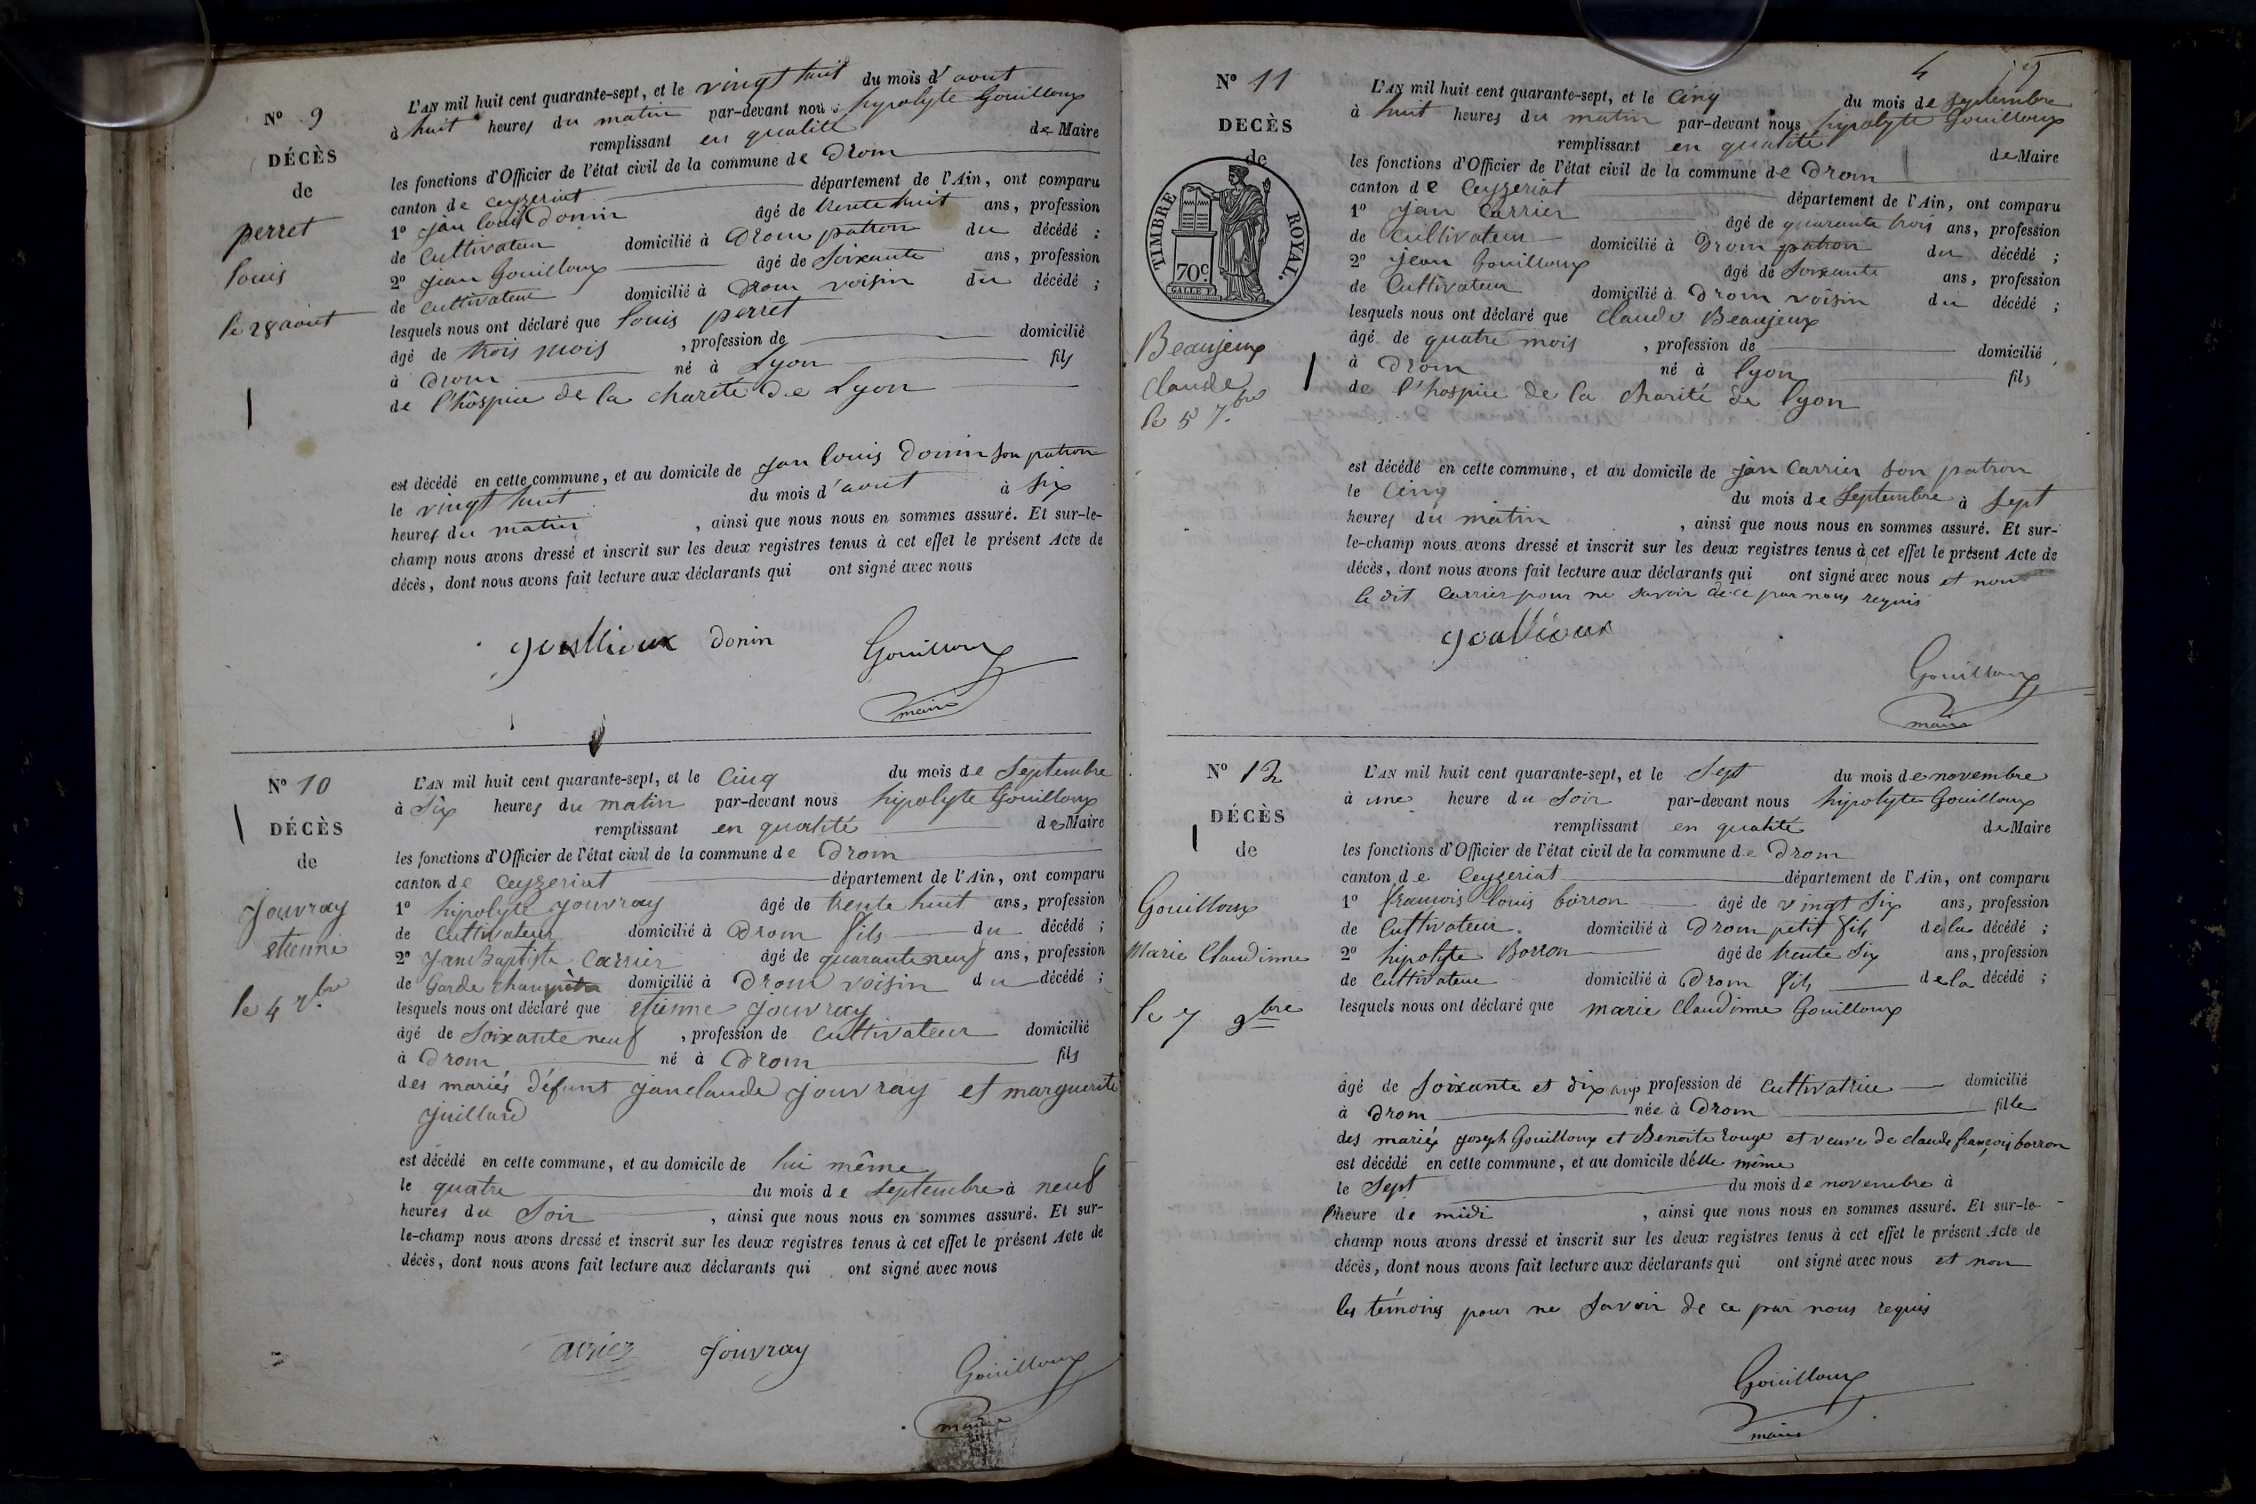 N° 9
DÉCÈS
de
perret
louis
le 28 aout
L'AN mil huit cent quarante-sept, et le vingt huit du mois d'aout
à huit heures du matin par-devant nous hypolyte Gouilloux
remplissant en qualité de Maire
les fonctions d'Officier de l'état civil de la commune de Drom
canton de Ceyzeriat département de l'Ain, ont comparu
1° jan louis Donin âgé de trente huit ans, profession
de Cultivateur domicilié à Drom patron du décédé ;
2° jean Gouilloux âgé de Soixante ans, profession
de cultivateur domicilié à Drom voisin du décédé ;
lesquels nous ont déclaré que louis perret
âgé de trois mois , profession de domicilié
à Drom né à Lyon fils
de l'hôspice de la charité de Lyon
est décédé en cette commune, et au domicile de jan louis Donin son patron
le vingt huit du mois d'aout à Six
heures du matin , ainsi que nous nous en sommes assuré. Et sur-le-
champ nous avons dressé et inscrit sur les deux registres tenus à cet effet le présent Acte de
décès, dont nous avons fait lecture aux déclarants qui ont signé avec nous
goullioux donin Gouilloux
maire
N° 10
DÉCÈS
de
Jouvray
etienne
le 4 7.bre
L'AN mil huit cent quarante-sept, et le Cinq du mois de Septembre
à Six heures du matin par-devant nous hipolyte Gouilloux
remplissant en qualité de Maire
les fonctions d'Officier de l'état civil de la commune de Drom
canton de Ceyzeriat département de l'Ain, ont comparu
1° hipolyte jouvray âgé de trente huit ans, profession
de Cultivateur domicilié à Drom fils du décédé ;
2° Jean Baptiste Carrier âgé de quarante neuf ans, profession
de Garde domicilié à Drom voisin du décédé ;
lesquels nous ont déclaré que etienne jouvray
âgé de Soixante neuf , profession de Cultivateur domicilié
à Drom né à Drom fils
des mariés défunt janclaude jouvray et marguerite
juillard
est décédé en cette commune, et au domicile de lui même
le quatre du mois de septembre à neuf
heures du Soir , ainsi que nous nous en sommes assuré. Et sur-
le-champ nous avons dressé et inscrit sur les deux registres tenus à cet effet le présent Acte de
décès, dont nous avons fait lecture aux déclarants qui ont signé avec nous
Jouvray Gouilloux
maire
4
N° 11
DECÈS
de
TIMBRE ROYAL.
70c
Beaujeux
claude
le 5 7.bre
L'AN mil huit cent quarante-sept, et le Cinq du mois de septembre
à huit heures du matin par-devant nous hipolyte Gouilloux
remplissant en qualité de Maire
les fonctions d'Officier de l'état civil de la commune de Drom
canton de Ceyzeriat département de l'Ain, ont comparu
1° jan Carrier âgé de quarante trois ans, profession
de Cultivateur domicilié à Drom patron du décédé ;
2° jean Gouilloux âgé de Soixante ans, profession
de Cultivateur domicilié à Drom voisin du décédé ;
lesquels nous ont déclaré que claude Beaujeux
âgé de quatre mois , profession de domicilié
à Drom né à lyon fils
de l'hospice de la charité de lyon
est décédé en cette commune, et au domicile de jan Carrier son patron
le Cinq du mois de Septembre à Sept
heures du matin , ainsi que nous nous en sommes assuré. Et sur-
le-champ nous avons dressé et inscrit sur les deux registres tenus à cet effet le présent Acte de
décès, dont nous avons fait lecture aux déclarants qui ont signé avec nous et non
le dit Carrier pour ne savoir de ce par nous requis
goullioux
Gouilloux
maire
N° 12
DÉCÈS
de
Gouilloux
Marie Claudinne
le 7 9bre
L'AN mil huit cent quarante-sept, et le Sept du mois de novembre
à une heure du Soir par-devant nous hipolyte Gouilloux
remplissant en qualité de Maire
les fonctions d'Officier de l'état civil de la commune de Drom
canton de Ceyzeriat département de l'Ain, ont comparu
1° francois louis borron âgé de vingt Six ans, profession
de Cultivateur domicilié à Drom petit fils de la décédé ;
2° hipolyte Borron âgé de trente Six ans, profession
de Cultivateur domicilié à Drom fils de la décédé ;
lesquels nous ont déclaré que marie Claudinne Gouilloux
âgé de Soixante et dix ans profession de Cultivatrice domicilié
à Drom née à Drom fille
des mariés joseph Gouilloux et Benoite rouge et veuve de claude françois borron
est décédé en cette commune, et au domicile d'elle même
le Sept du mois de novembre à
l'heure de midi , ainsi que nous nous en sommes assuré. Et sur-le-
champ nous avons dressé et inscrit sur les deux registres tenus à cet effet le présent Acte de
décès, dont nous avons fait lecture aux déclarants qui ont signé avec nous et non
les témoins pour ne Savoir de ce par nous requis
Gouilloux
maire